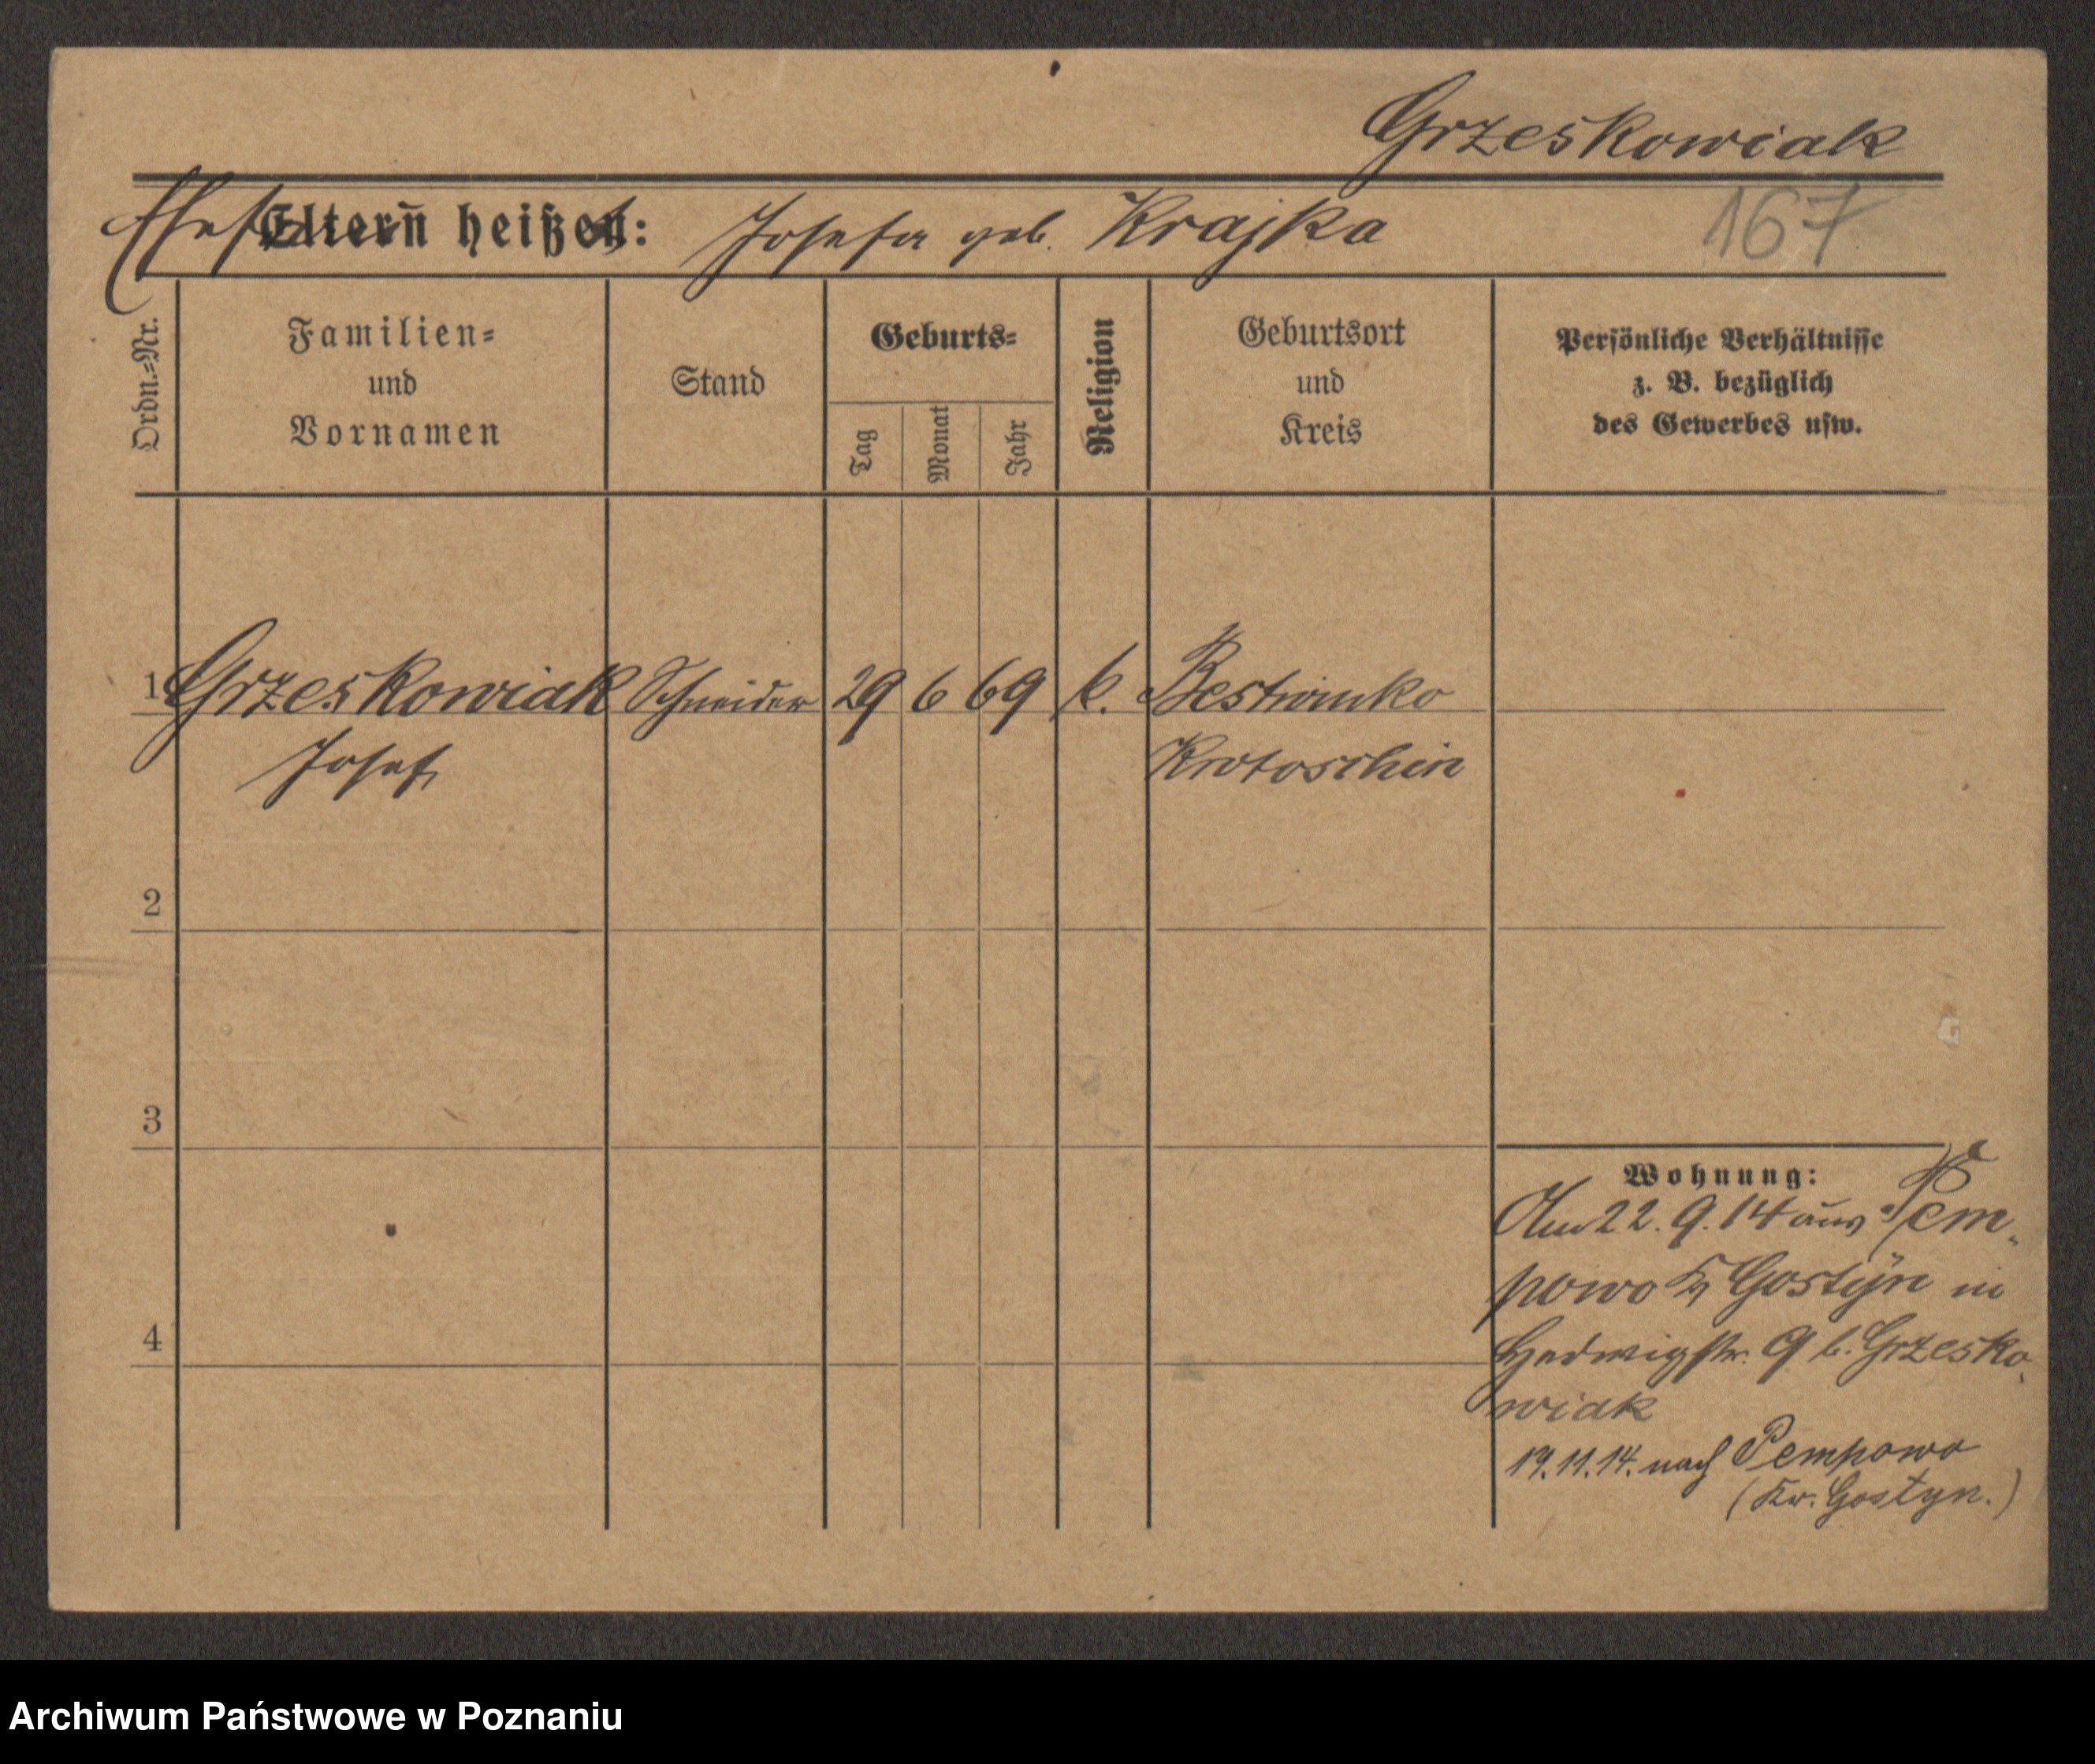 Grzeskowiak
Ehefrau Eltern heißen: Josefa geb. Krajka
167
Ordn.=Nr.
Familien=
und
Vornamen
Stand
Geburts=
Tag
Monat
Jahr
Religion
Geburtsort
und
Kreis
Persönliche Verhältnisse
z. B. bezüglich
des Gewerbes usw.
1 Grzeskowiak Schneider 29 6 69 k. Bestwinko
Josef Krotoschin
2
3
4
Wohnung:
Am 22.9.14 aus Pem-
powo Kr Gostyn in
Hedwigstr. 9 b. Grzesko-
wiak
19.11.14. nach Pempowo
(Kr. Gostyn.)
Archiwum Państwowe w Poznaniu